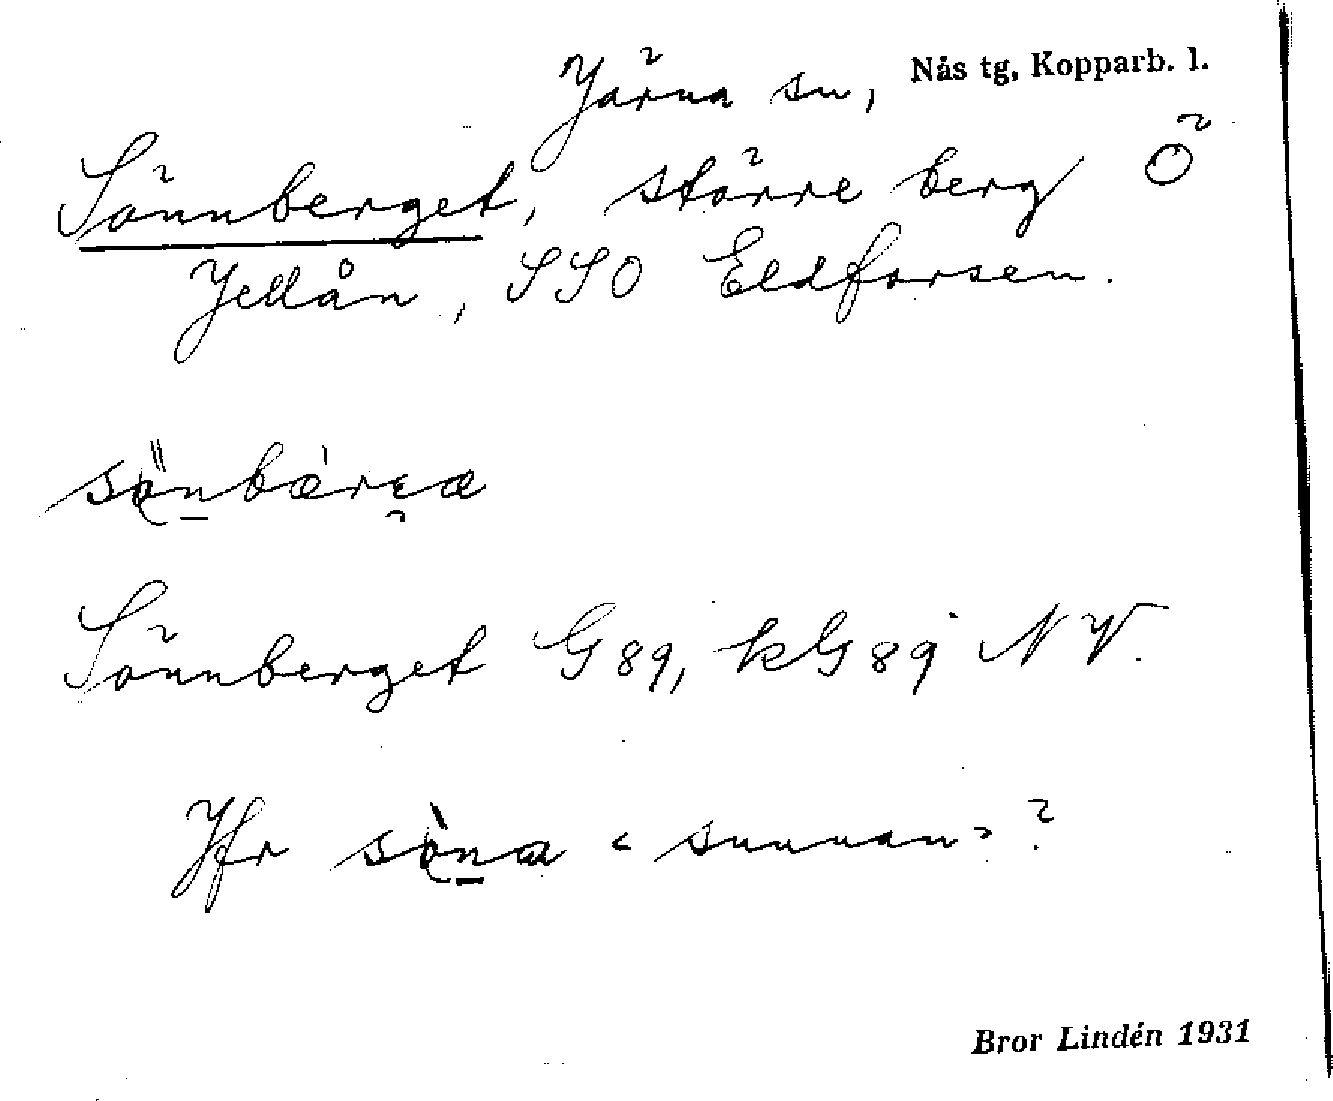 Järna sn, Nås tg, Kopparb. l.
Sönnberget, större berg Ö
Jellån, SSO Eldforsen.
Sönnberget G 89, kG 89 NV.
Jfr söna < sunnan > ?
Bror Lindén 1931